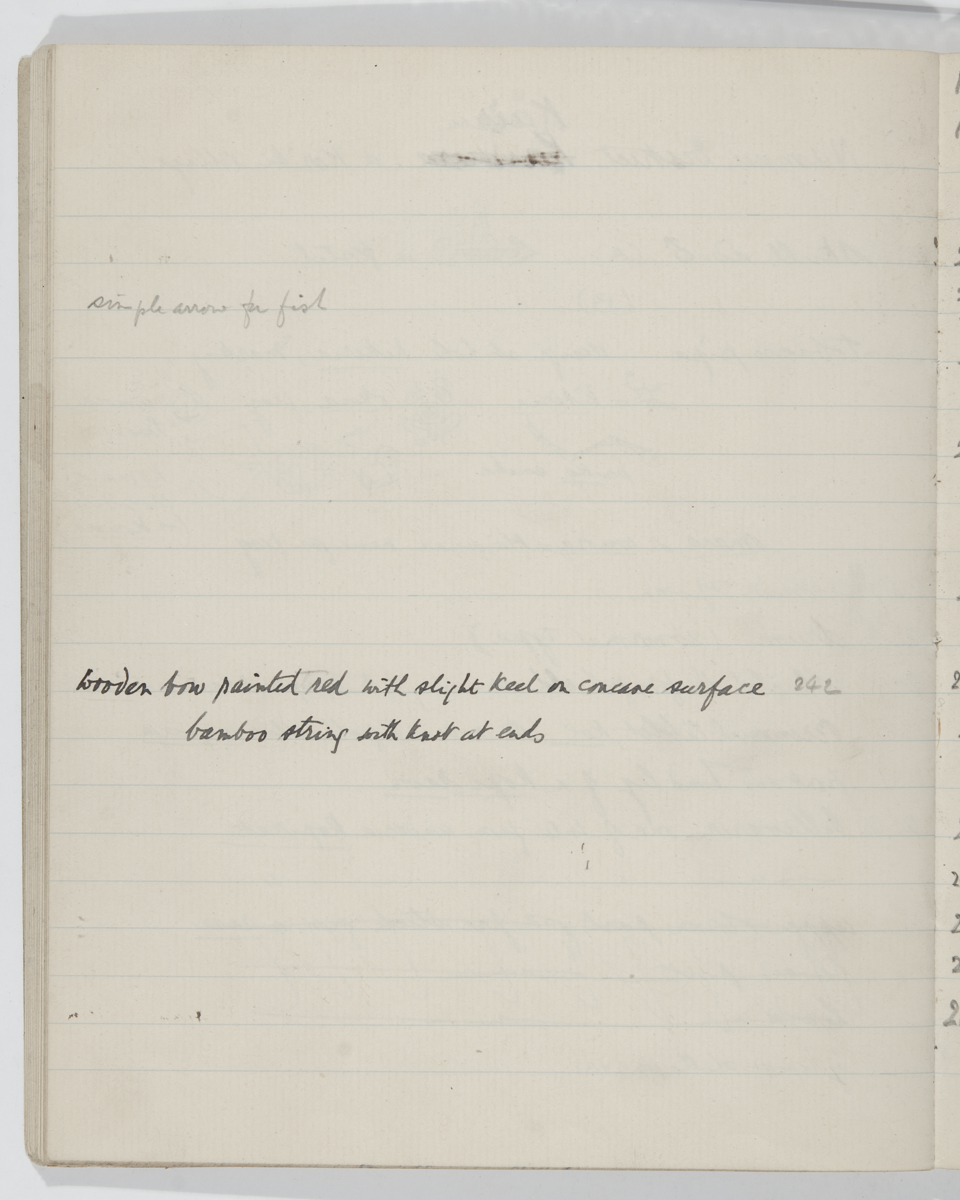 simple arrow for fish
wooden bow painted red with slight keel on concave surface 242
bamboo string with knot at ends